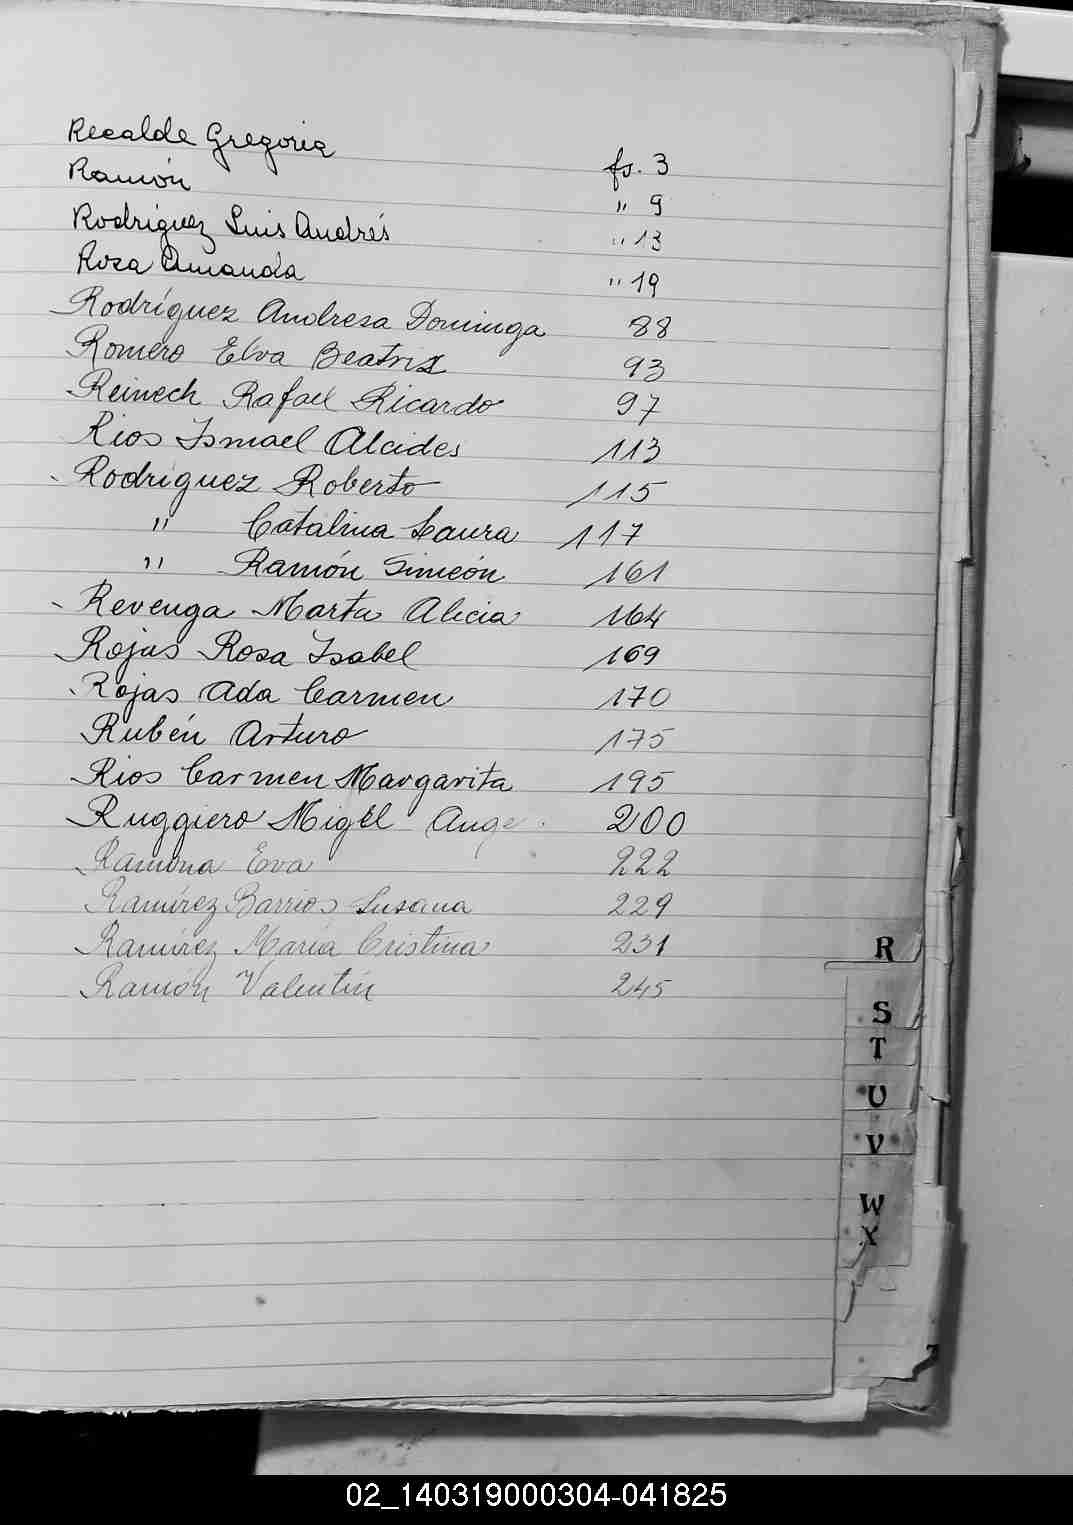 Recalde Gregoria fs. 3
Ramón " 9
Rodríguez Luis Andrés " 13
Rosa Amanda " 19
Rodríguez Andresa Dominga 88
Romero Elva Beatriz 93
Reinech Rafael Ricardo 97
Rios Ismael Alcides 113
Rodríguez Roberto 115
" Catalina Laura 117
" Ramón Simeón 161
Revenga Marta Alicia 164
Rojas Rosa Isabel 169
Rojas Ada Carmen 170
Rubén Arturo 175
Rios Carmen Margarita 195
Ruggiero Migél Ange 200
Ramona Eva 222
Ramírez Barrios Susana 229
Ramírez María Cristina 231
Ramón Valentín 245
R
S
T
U
V
W
X
02_140319000304-041825